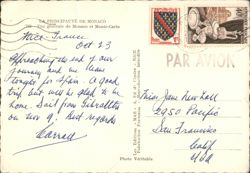 LA PRINCIPAUTÉ DE MONACO
Vue générale de Monaco et Monte-Carlo
Nice-France
Oct 23
Approaching the end of our
journey and we leave
tonight for Spain. A good
trip but will be glad to be
home. Sail from Gibraltar
on Nov 9. Kind regards
Carroll
PAR AVION
Miss Jane Newhall
2950 Pacific
San Francisco
Calif
USA
Photo Véritable